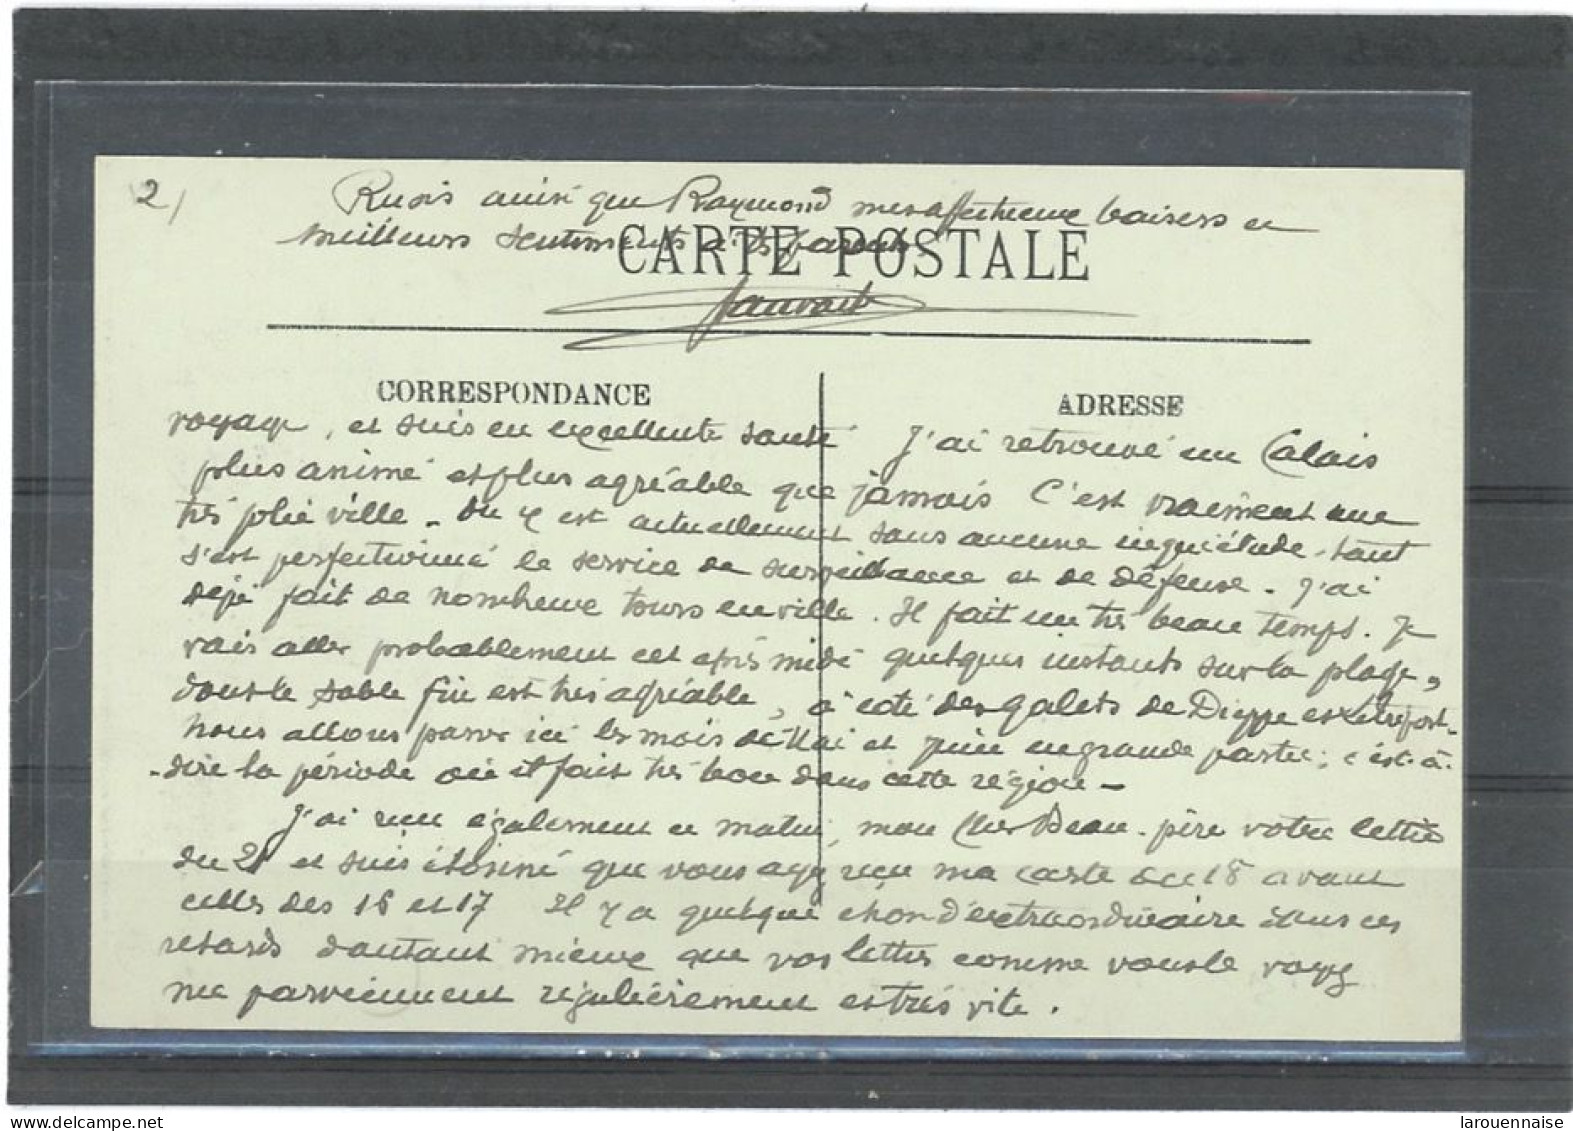 2/
Reçois ainsi que Raymond mes affectueux baisers et
meilleurs sentiments
CARTE POSTALE
CORRESPONDANCE
ADRESSE
voyage, et suis en excellente santé J'ai retrouvé un Calais
plus animé et plus agréable que jamais C'est vraiment une
très jolie ville - On y est actuellement sans aucune inquiétude, tant
s'est perfectionné le service de surveillance et de défense - J'ai
déjà fait de nombreux tours en ville. Il fait un très beau temps. Je
vais aller probablement cet après midi quelques instants sur la plage,
dont le sable fin est très agréable, à côté des galets de Dieppe et
nous allons passer ici les mois de Mai et Juin en grande partie; c'est-à-
-dire la période où il fait très bon dans cette région -
J'ai reçu également ce matin, mon cher Beau-père votre lettre
du 21 et suis étonné que vous ayez reçu ma carte du 18 avant
celles des 16 et 17 Il y a quelque chose d'extraordinaire dans ces
retards d'autant mieux que vos lettres comme vous le voyez
me parviennent régulièrement et très vite.
delcampe.net
larouennaise